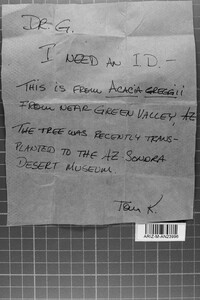 DR. G.
I NEED AN ID. –
THIS IS FROM ACACIA GREGGII
FROM NEAR GREEN VALLEY, AZ
THE TREE WAS RECENTLY TRANS-
PLANTED TO THE AZ-SONORA
DESERT MUSEUM
Tom K.
ARIZ-M-AN23996